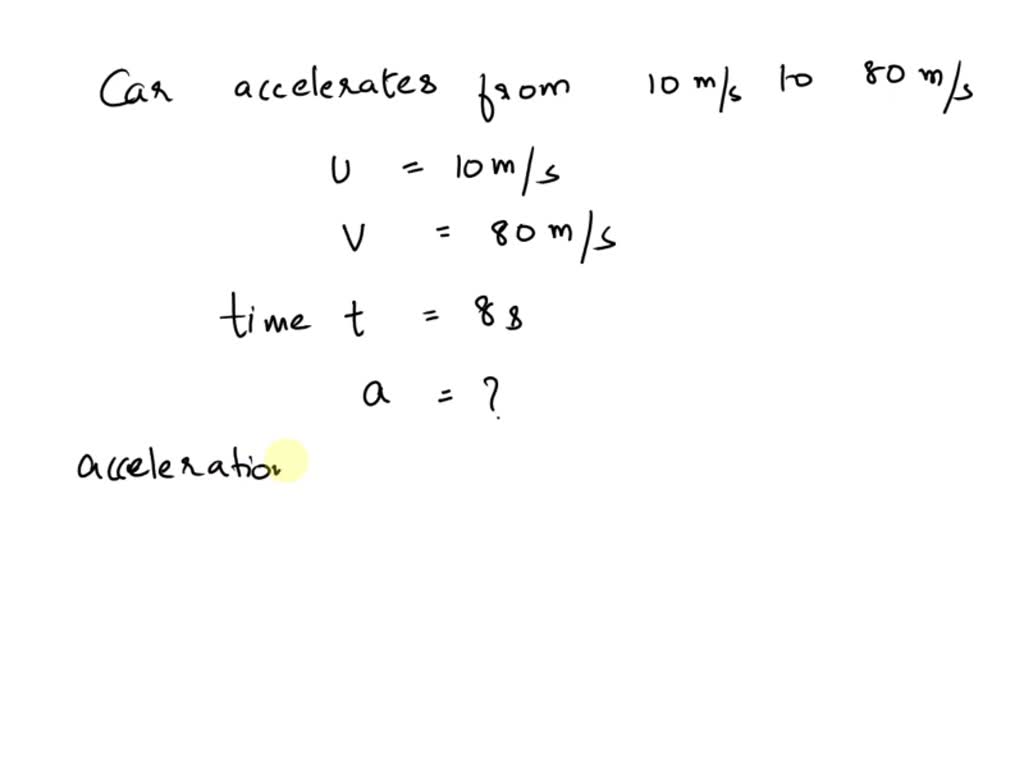 Car accelerates from 10 m/s to 80 m/s
U = 10 m/s
V = 80 m/s
time t = 8s
a = ?
acceleration